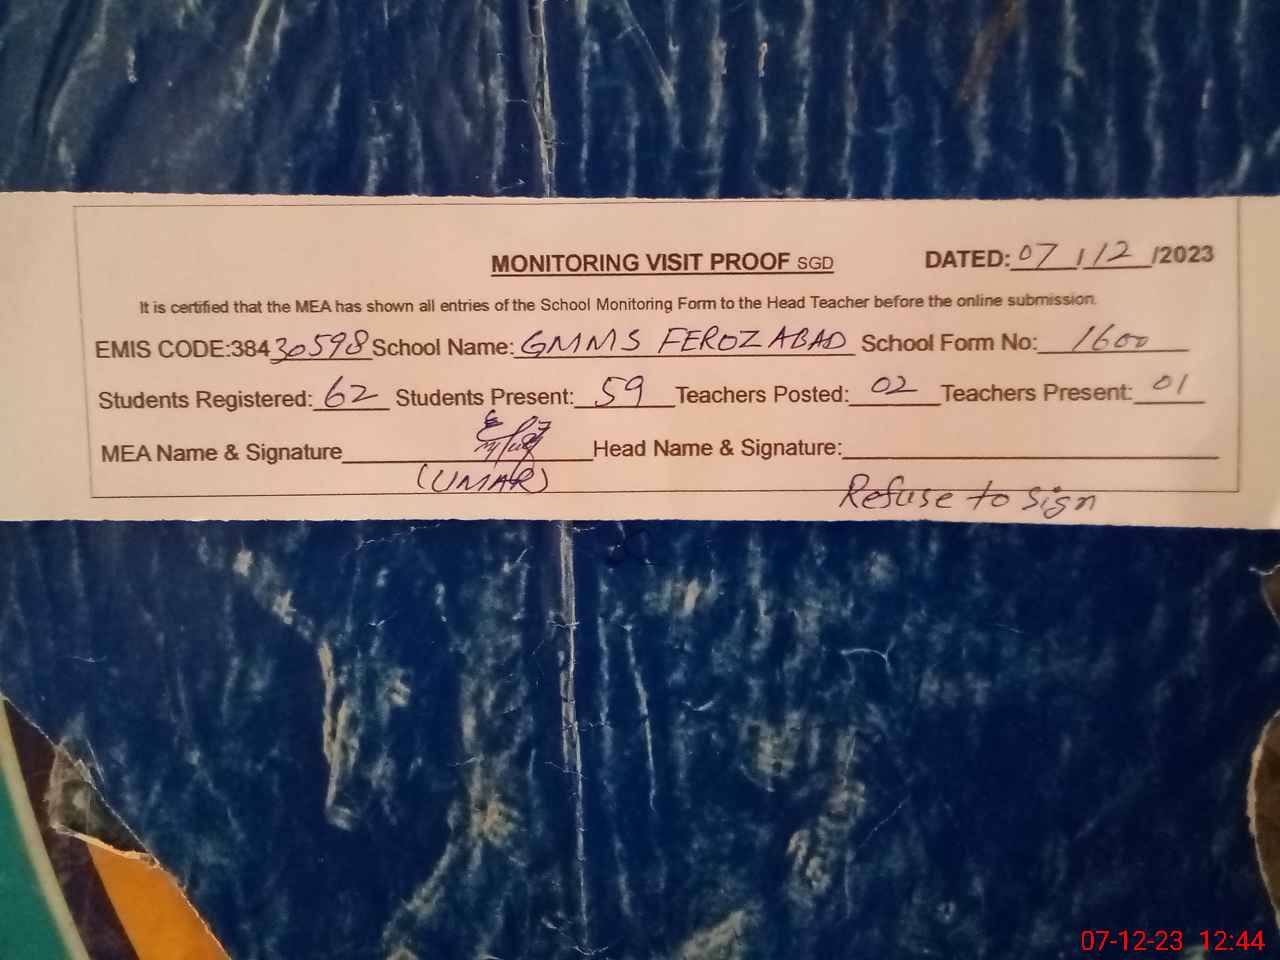 MONITORING VISIT PROOF SGD DATED: 07 / 12 /2023
It is certified that the MEA has shown all entries of the School Monitoring Form to the Head Teacher before the online submission.
EMIS CODE:38430598 School Name: GMMS FEROZABAD School Form No: 1600
Students Registered: 62 Students Present: 59 Teachers Posted: 02 Teachers Present: 01
MEA Name & Signature Head Name & Signature:
(UMAR) Refuse to sign
07-12-23 12:44